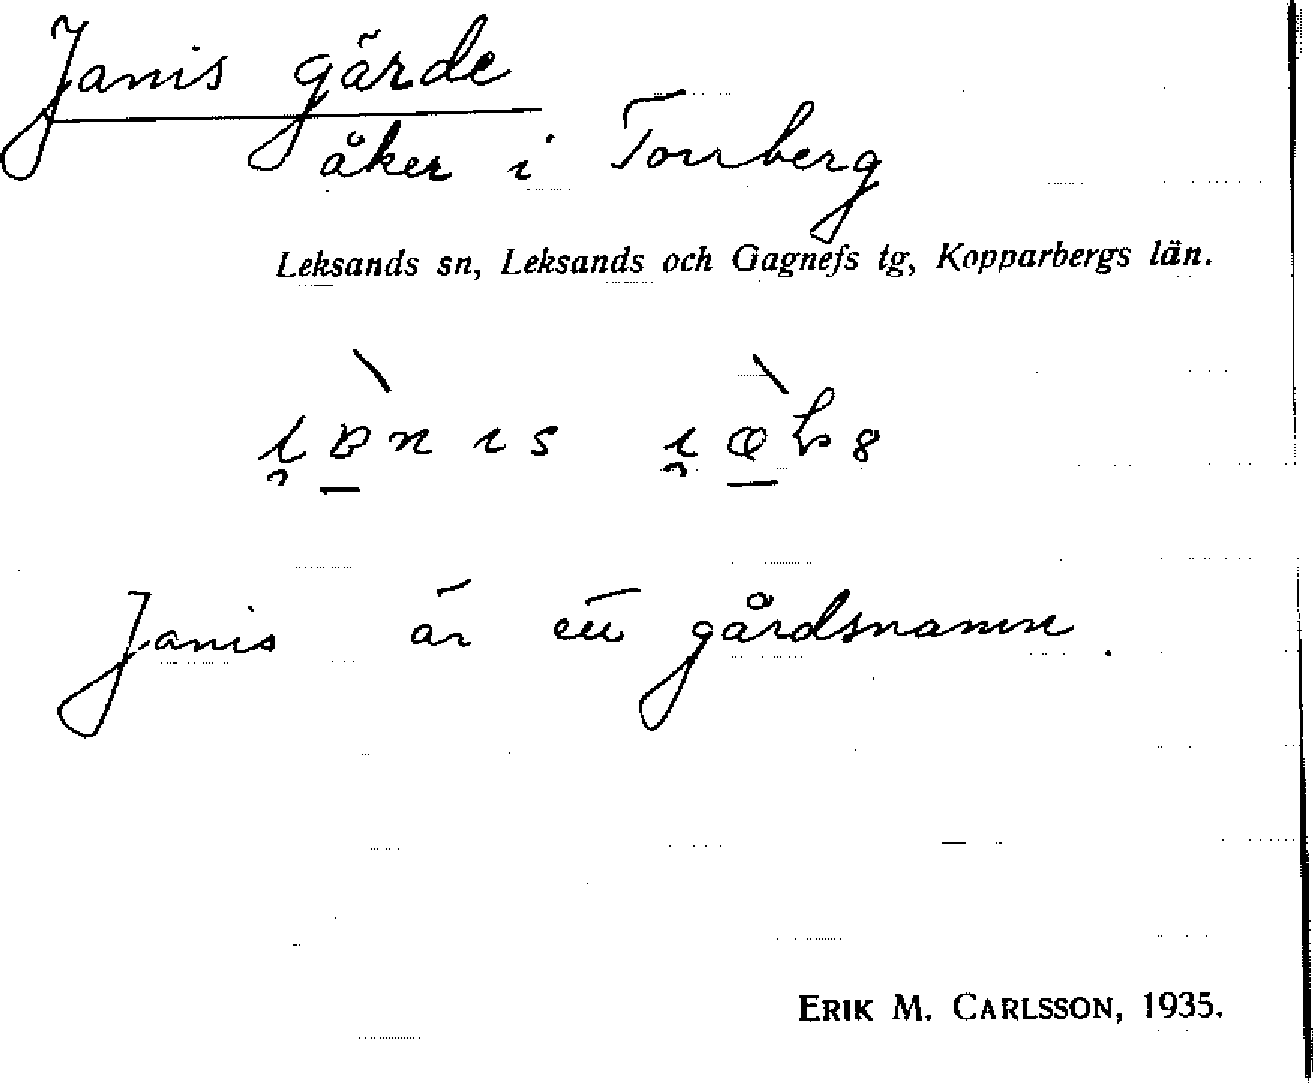 Janis gärde
åker i Torrberg
Leksands sn, Leksands och Gagnefs tg, Kopparbergs län.
Janis är ett gårdsnamn.
ERIK M. CARLSSON, 1935.